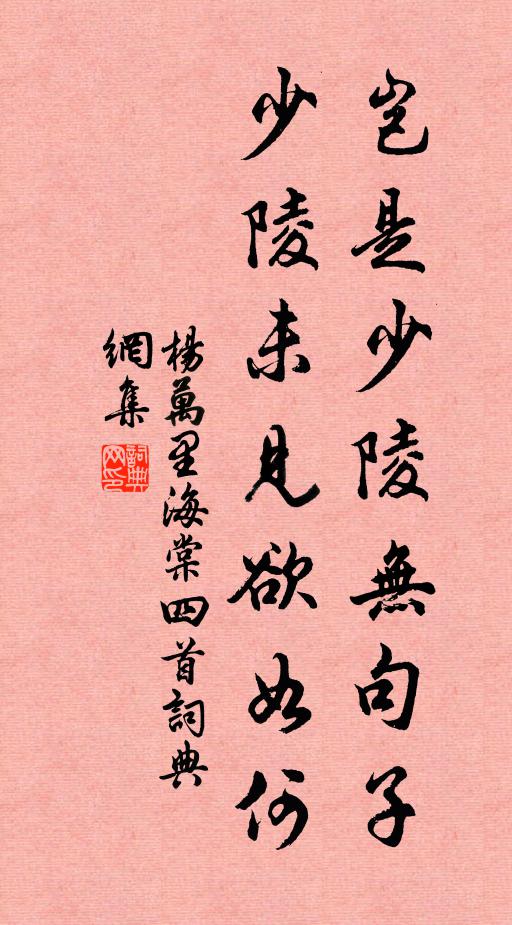 豈是少陵無句子
少陵未見欲如何
楊萬里海棠四首詞典
網集
詞典
网印